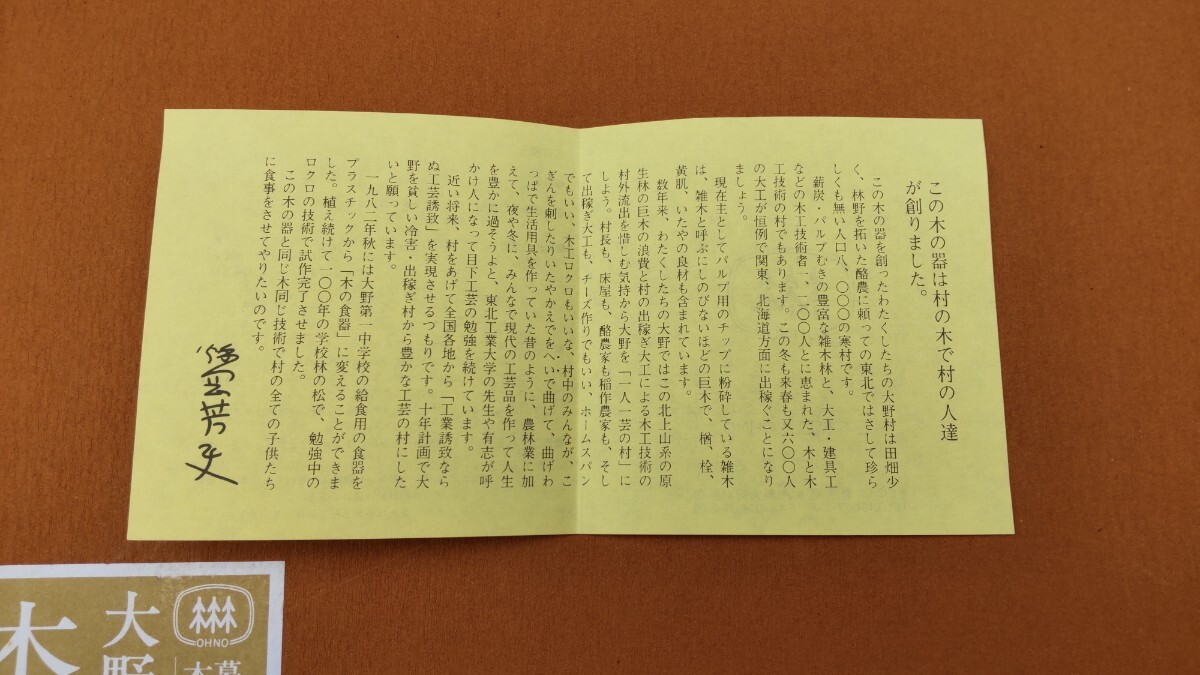 この木の器は村の木で村の人達
が創りました。
この木の器を創ったわたくしたちの大野村は田畑少
く、林野を拓いた酪農に頼っての東北ではさして珍ら
しくも無い人口八、〇〇〇の寒村です。
薪炭・パルプむきの豊富な雑木林と、大工・建具工
などの木工技術者一、二〇〇人とに恵まれた、木と木
工技術の村でもあります。この冬も来春も又六〇〇人
の大工が恒例で関東、北海道方面に出稼ぐことになり
ましょう。
現在主としてパルプ用のチップに粉砕している雑木
は、雑木と呼ぶにしのびないほどの巨木で、楢、栓、
黄肌、いたやの良材も含まれています。
数年来、わたくしたちの大野ではこの北上山系の原
生林の巨木の浪費と村の出稼ぎ大工による木工技術の
村外流出を惜しむ気持から大野を「一人一芸の村」に
しよう。村長も、床屋も、酪農家も稲作農家も、そし
て出稼ぎ大工も、チーズ作りでもいい、ホームスパン
でもいい、木工ロクロもいいな、村中のみんなが、こ
ぎんを刺したりいたやかえでをへいで曲げて、曲げわ
っぱで生活用具を作っていた昔のように、農林業に加
えて、夜や冬に、みんなで現代の工芸品を作って人生
を豊かに過そうよと、東北工業大学の先生や有志が呼
かけ人になって目下工芸の勉強を続けています。
近い将来、村をあげて全国各地から「工業誘致なら
ぬ工芸誘致」を実現させるつもりです。十年計画で大
野を貧しい冷害・出稼ぎ村から豊かな工芸の村にした
いと願っています。
一九八二年秋には大野第一中学校の給食用の食器を
プラスチックから「木の食器」に変えることができま
した。植え続けて一〇〇年の学校林の松で、勉強中の
ロクロの技術で試作完了させました。
この木の器と同じ木同じ技術で村の全ての子供たち
に食事をさせてやりたいのです。
OHNO
大野
木